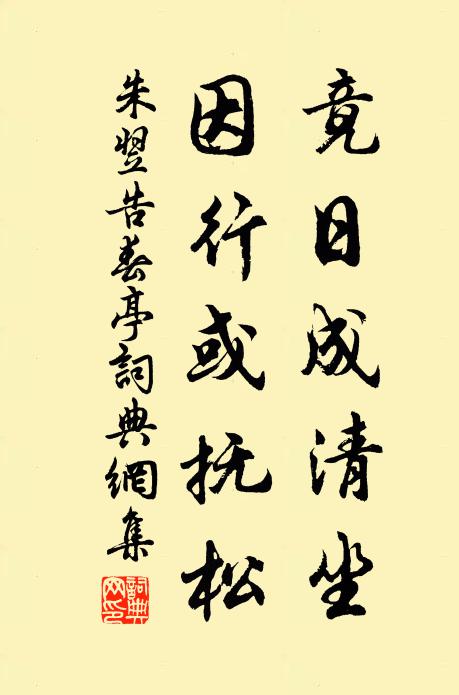 竟日成清坐
因行或抚松
朱翌告春亭詞典網集
詞典网印